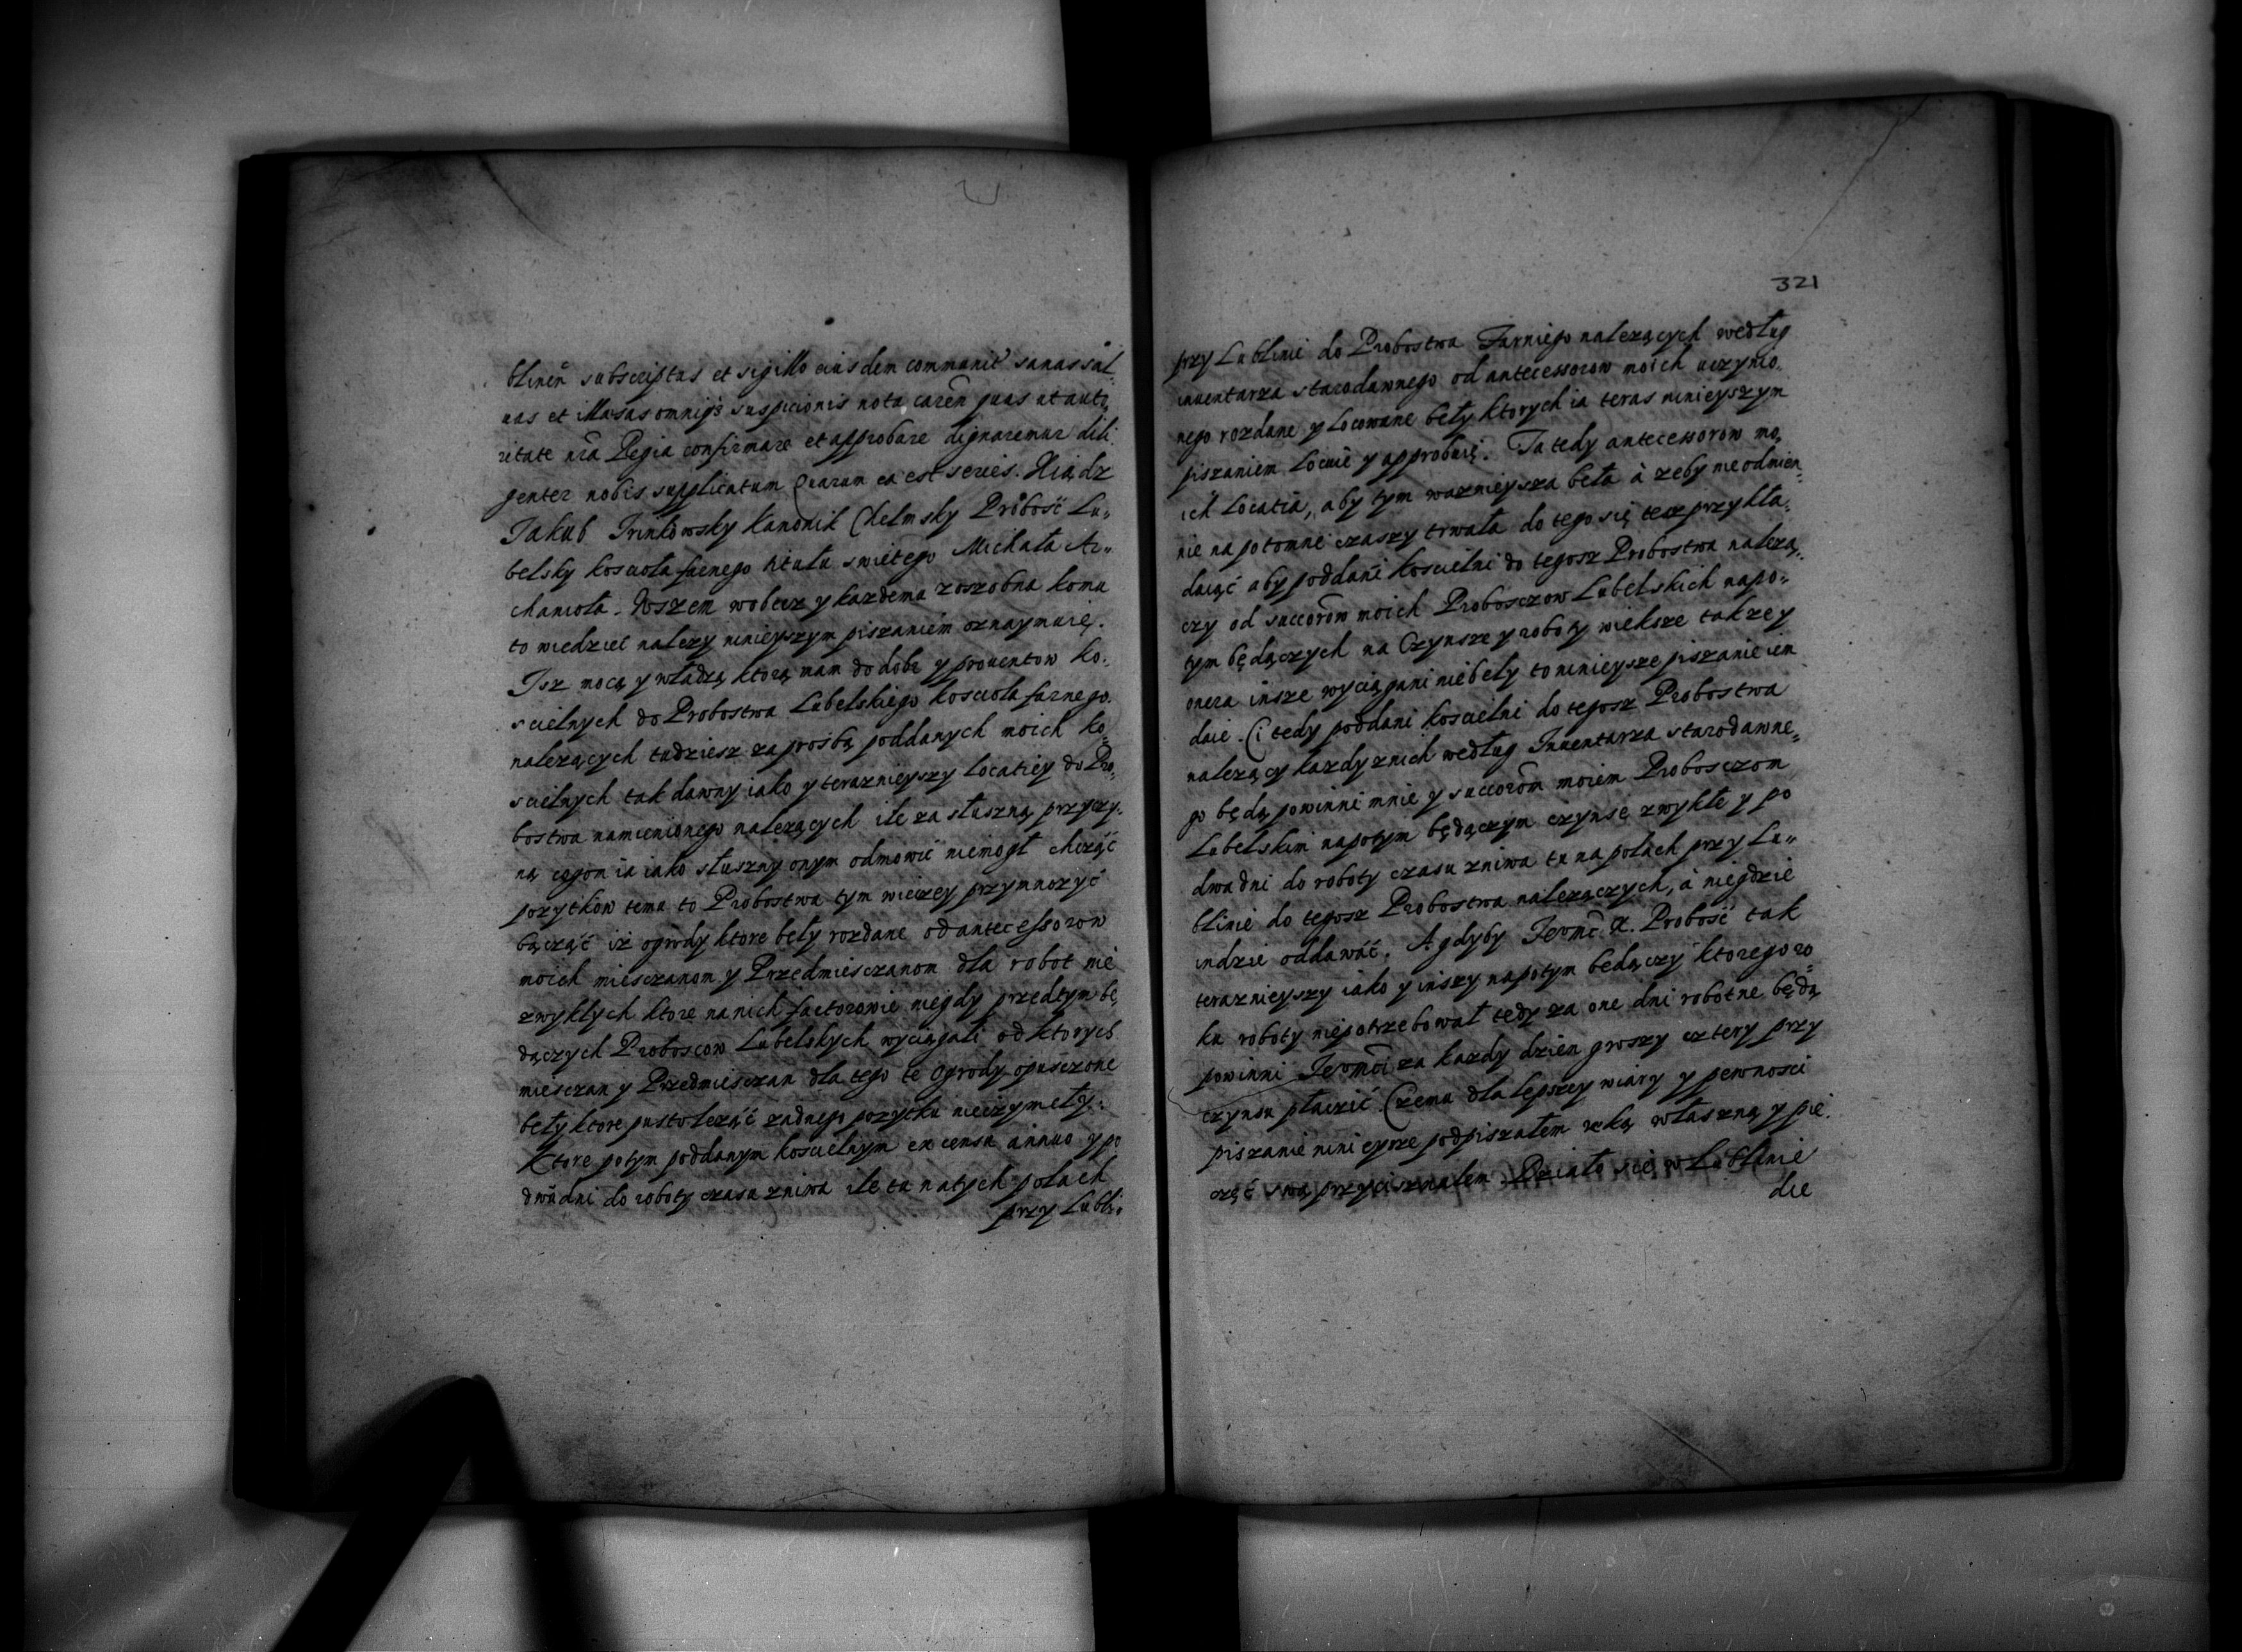 blinen̄ subscriptas et sigillo eiusdem communit' sanas sal„
uas et illaesas omniq3 suspicionis nota caren̄ quas ut auto„
ritate n̄ra Regia confirmare et approbare dignaremur dili„
genter nobis supplicatum Quarum ea est series. Xiądz
Jakub Kanonik Chelmsky Probosć Lu„
belsky kosciola farnego titulu swietego Michała Ar„
chanioła. Wszem wobecz y kazdemu zoszobna komu
to wiedziec nalezy ninieyszym piszaniem oznaymuię.
Isz mocą y władzą ktorą mam do dobr y prouentow ko„
scielnych do Probostwa Lubelskiego kosciola farnego
nalezących tudziesz za prośbą poddanych moich ko„
scielnych tak dawny iako y teraznieyszy locatiey do Pro„
bostwa namienionego nalezących ile za słuszną przyczy„
ną czgom ia iako słuszny onym odmowić niemogł chcząć
pozytkow temu to Probostwa tym wieczey przymnozyć
bącząć iż ogrody ktore beły rozdane od antecessorow
moich miesczanom y Przedmiesczanom dla robot nie
zwykłych ktore na nich factorowie niegdy przedtym bę„
dączych Proboscow Lubelskych wyciągali od ktorych
miesczan y Przedmiesczan dla tego te ogrody opusczone
beły ktore pusto leząć zadnego pozytku nieczymeły.
Ktore potym poddanym koscielnym ex censu annuo y po
dwu dni do roboty czasu zniwa ile tu na tych polach
przy Lubli„
321
przy Lublinie do Probostwa Farniego nalezących według
inuentarza starodawnego od antecessorow moich uczynio„
nego rozdane y locowane beły ktorych ia teras ninieyszym
piszaniem locuie y approbuię. Ta tedy antecessorow mo„
ich locatia, aby tym wazniejsza beła à zeby nie odmien„
nie na potomne czaszy trwała do tego się tesz przykła„
daiąć aby poddani koscielni do tegosz Probostwa nalezą„
czy od succorōw moich Probosczow Lubelskich napo„
tym będączych na Czynsze y roboty wieksze takze y
onera insze wyciągani niebeły to ninieysze piszanie iem
daie. Ci tedy poddani koscielni do tegosz Probostwa
nalezący kazdy znich według Inuentarza starodawne„
go będą powinni mnie y succorōm moiem Probosczom
Lubelskim napotym będączym czynsę zwykłe y po
dwa dni do roboty czasu zniwa tu na polach przy Lu„
blinie do tegosz Probostwa nalezączych, à niegdzie
indzie oddawáć. A gdyby Jeomć. X. Probosć tak
terazniejszy iako y inszy napotym bedączy ktorego ro„
ku roboty niepotrzebował tedy za one dni robotne będą
powinni Jeomci za kazdy dzien groszy cztery przy
czynsu płaczić Czemu dla lepszey wiary y pewnosci
piszanie ninieysze podpiszałem ręką własną y pie„
częć swą przycisznałem. Działo się w Lublinie
die